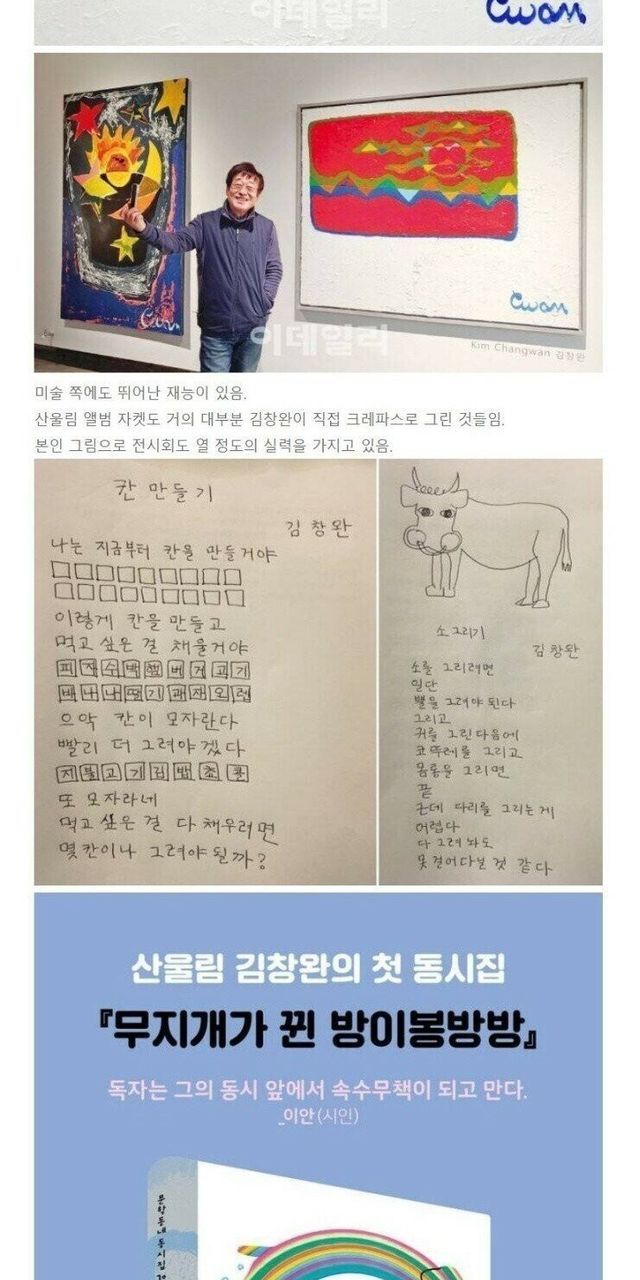 이데일리
Cwan
Cwan
이데일리
Cwan
Kim Changwan 김창완
미술 쪽에도 뛰어난 재능이 있음.
산울림 앨범 자켓도 거의 대부분 김창완이 직접 크레파스로 그린 것들임.
본인 그림으로 전시회도 열 정도의 실력을 가지고 있음.
칸 만들기
김창완
나는 지금부터 칸을 만들거야
이렇게 칸을 만들고
먹고 싶은 걸 채울거야
피자수박햄버거고기
바나나딸기과자오렌
으악 칸이 모자란다
빨리 더 그려야겠다
지불고기김밥초콜
또 모자라네
먹고 싶은 걸 다 채우려면
몇 칸이나 그려야 될까?
소 그리기
김창완
소를 그리려면
일단
뿔을 그려야 된다
그리고
귀를 그린 다음에
코뚜레를 그리고
몸통을 그리면
끝
근데 다리를 그리는 게
어렵다
다 그려 놔도
못 걸어다닐 것 같다
산울림 김창완의 첫 동시집
『무지개가 뀐 방이봉방방』
독자는 그의 동시 앞에서 속수무책이 되고 만다.
_이안(시인)
문학동네 동시집